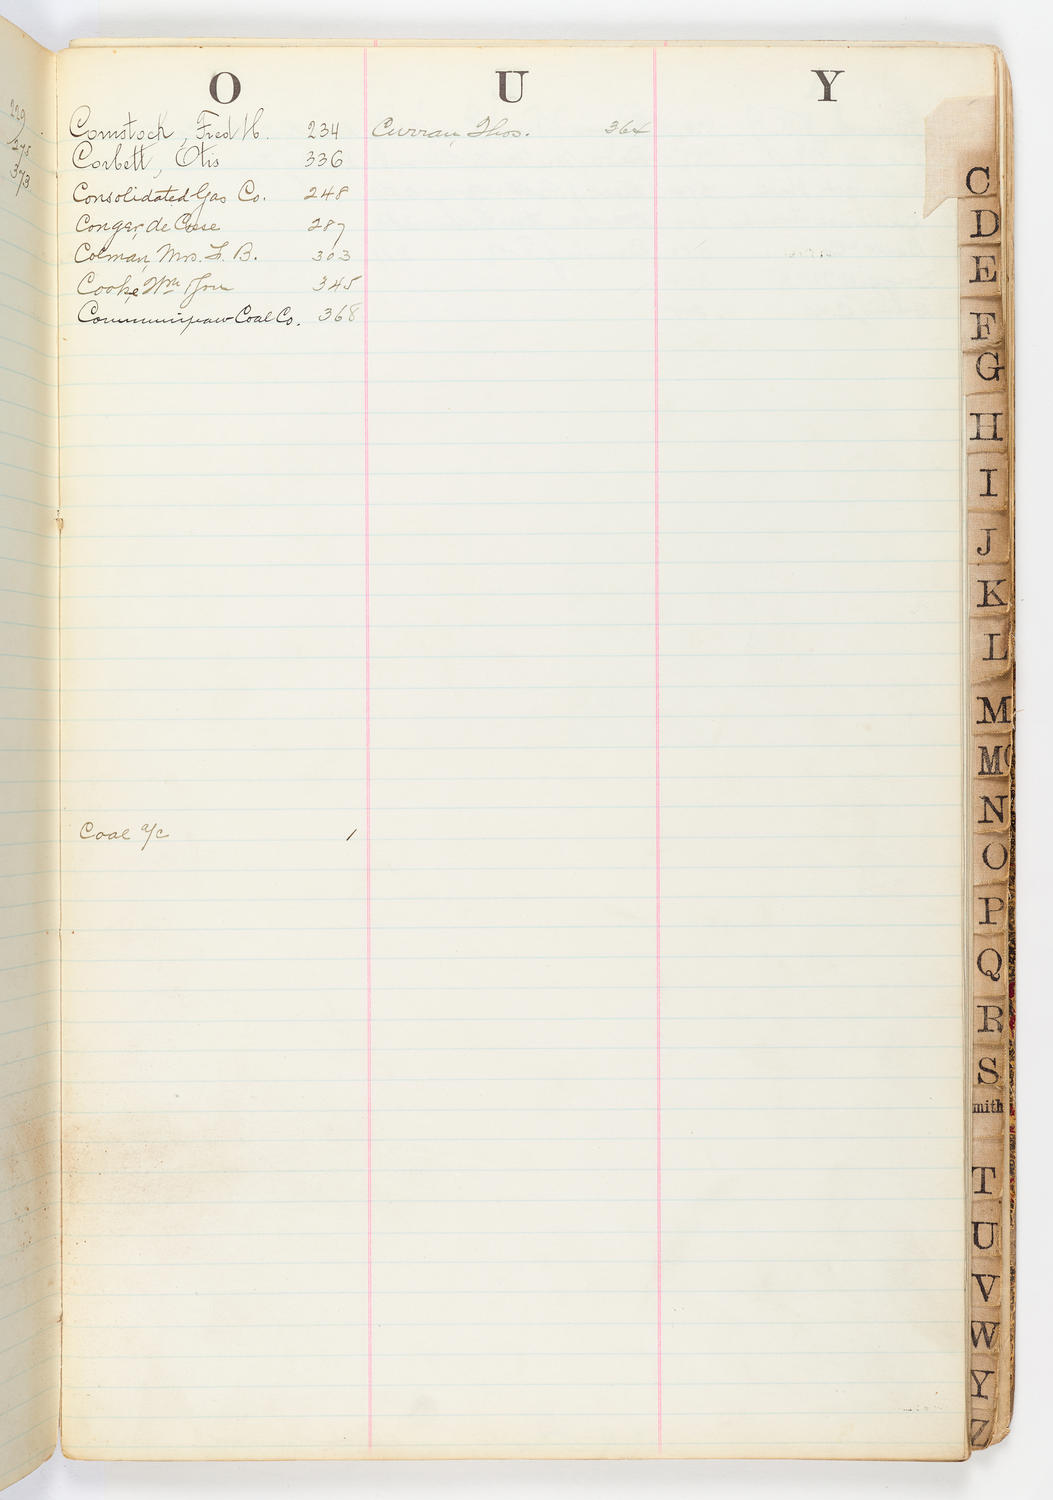 229
275
373
O U Y
Comstock, Fred H. 234
Corbett, Otis 336
Consolidated Gas Co. 248
Conger, de Cuse 287
Colman, Mrs. F. B. 303
Cooke, Wm & Son 345
Communipaw Coal Co. 368
Coal a/c 1
Curran, Thos. 364
C
D
E
F
G
H
I
J
K
L
M
Mc
N
O
P
Q
R
S
mith
T
U
V
W
Y
Z